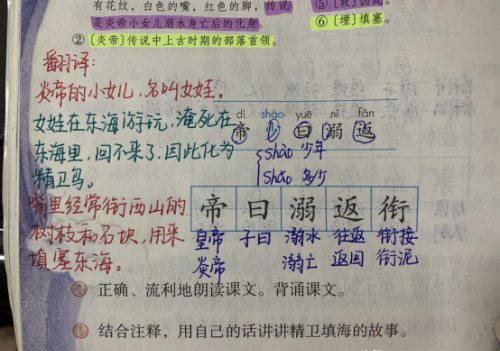 有花纹，白色的嘴，红色的脚，传说
是炎帝小女儿溺水身亡后的化身。
⑥〔堙〕填塞。
②〔炎帝〕传说中上古时期的部落首领。
翻译：
炎帝的小女儿，名叫女娃。
女娃在东海游玩，淹死在
东海里，回不来了，因此化为
精卫鸟。
嘴里经常衔西山的
树枝和石块，用来
填塞东海。
dì shào yuē nì fǎn
帝 少 曰 溺 返
shào 少年
shǎo 多少
帝 曰 溺 返 衔
皇帝 子曰 溺水 往返 衔接
炎帝 溺亡 返回 衔泥
正确、流利地朗读课文。背诵课文。
结合注释，用自己的话讲讲精卫填海的故事。